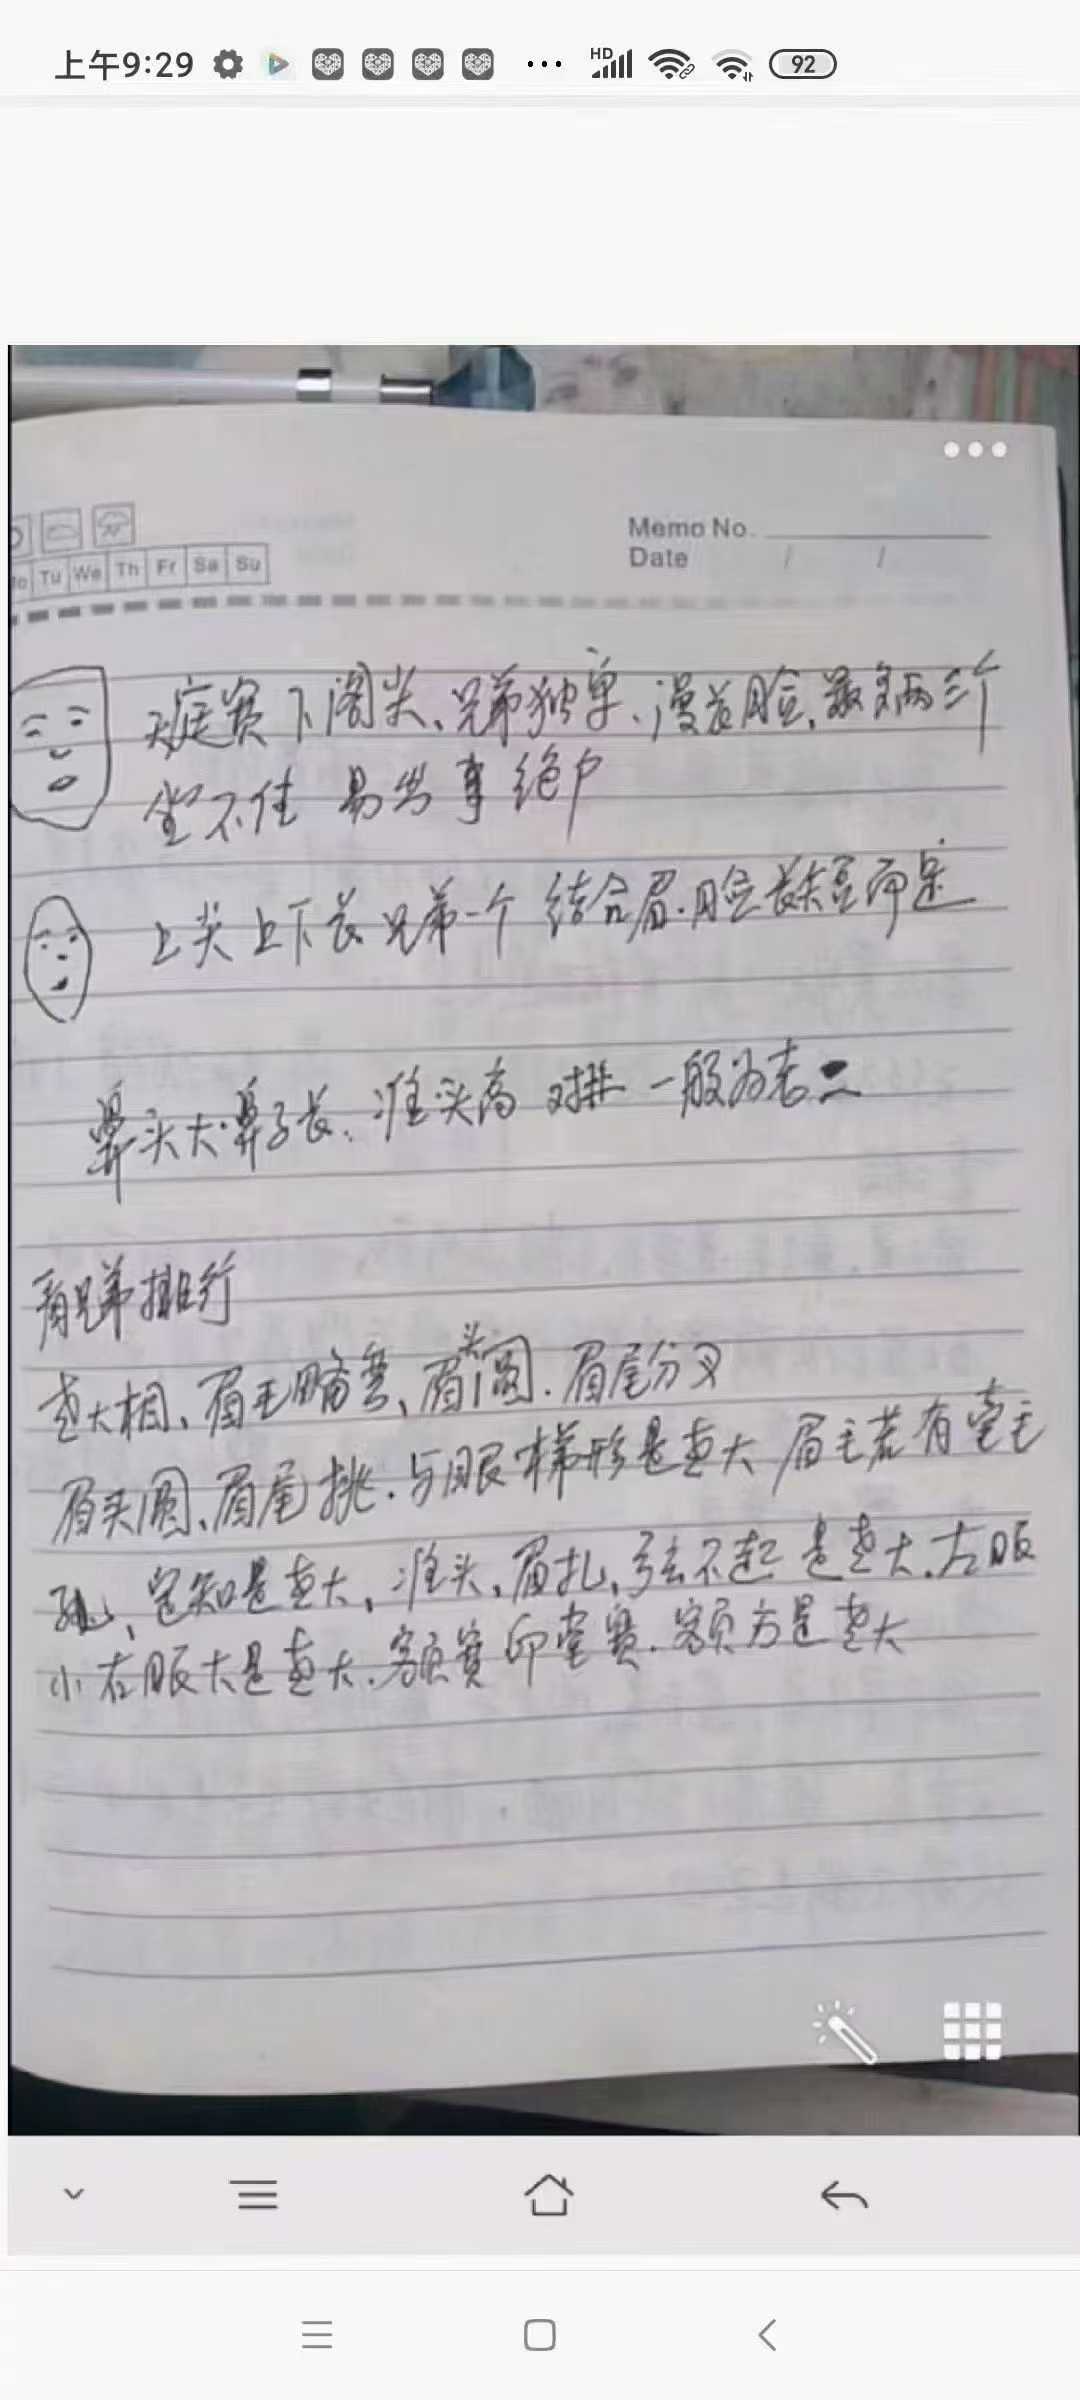 上午9:29
HD
92
Memo No.
Date / /
Tu We Th Fr Sa Su
天庭宽下阁尖、兄弟独单、漫长脸,最多两三个
坐不住 易出事 绝户
上尖上下长 兄弟一个 结合眉.脸长短而定
鼻头大.鼻子长、准头高 对排 一般为老二
看兄弟排行
老大相、眉毛略弯、眉头圆.眉尾分叉
眉头圆、眉尾挑.与眼梯形是老大 眉毛若有毫毛
定知是老大,准头,眉扎,弦不起 是老大.左眼
小右眼大是老大.额宽印堂宽.额方是老大